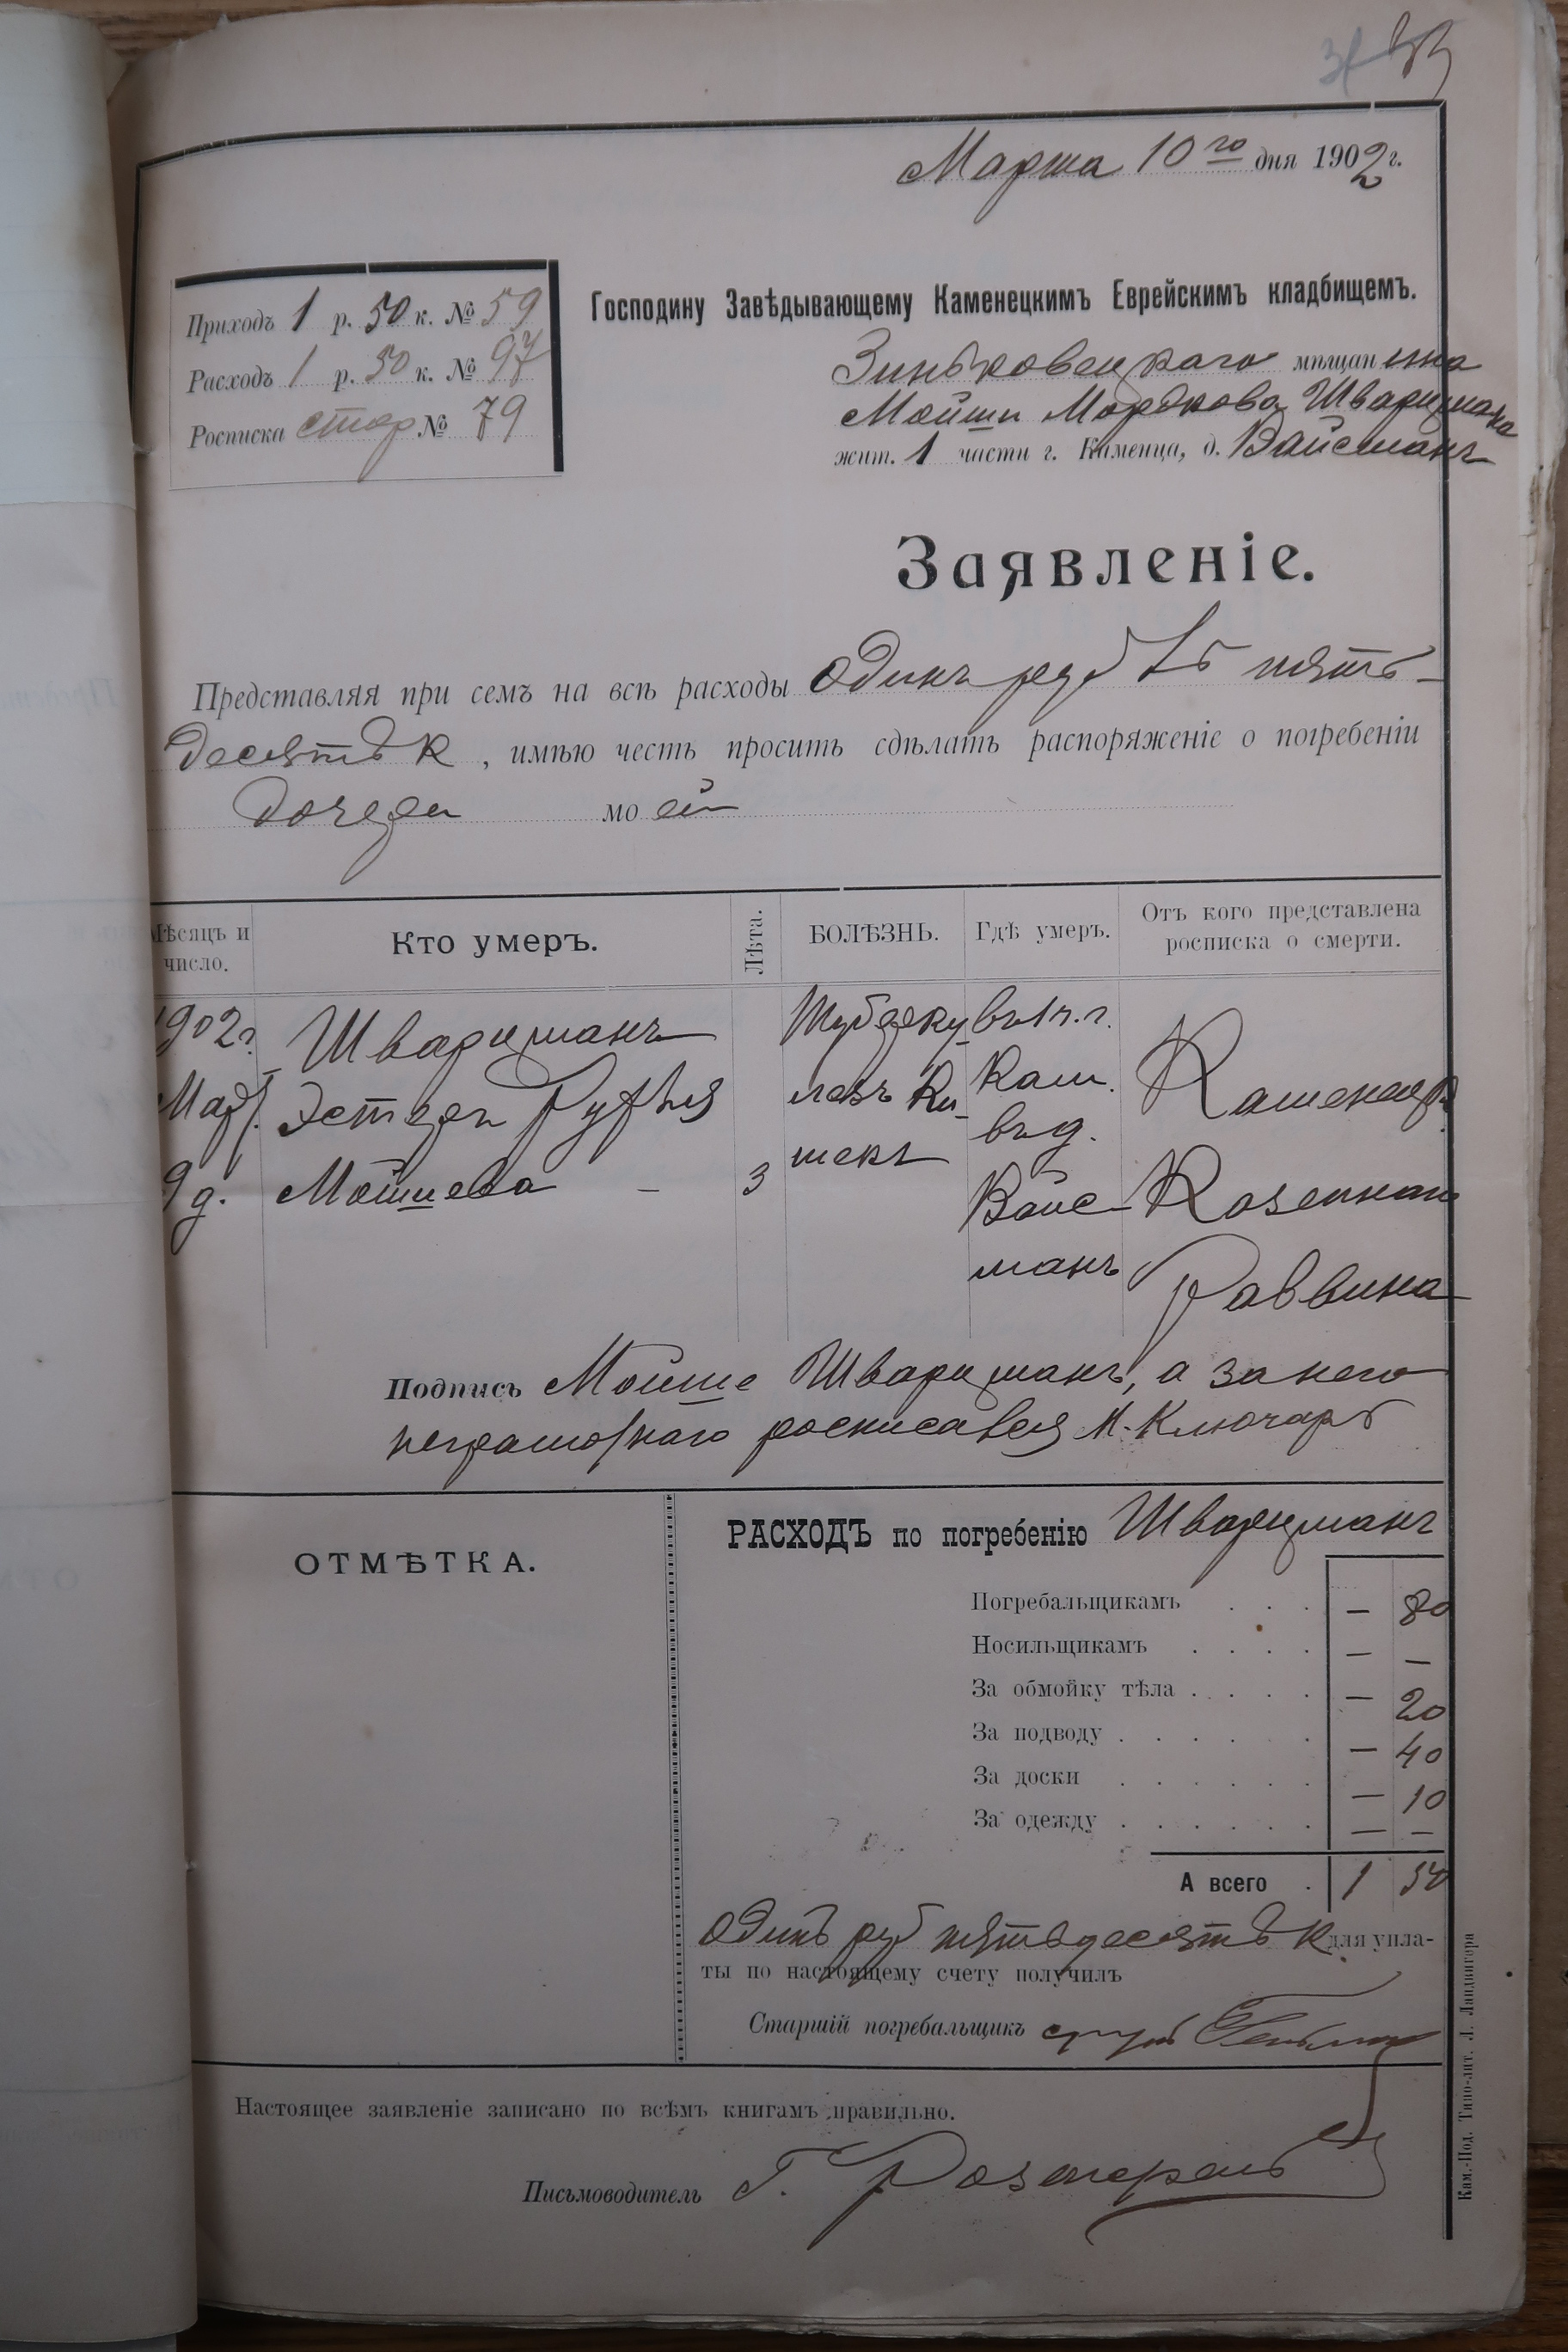 33
Марта 10го дня 1902 г.
Приходъ 1 р. 50 к. № 59
Расходъ 1 р. 50 к. № 97
Росписка стар № 79
Господину Завѣдывающему Каменецкимъ Еврейскимъ кладбищемъ.
Зиньковецкаго мѣщанина
Мойши Мордкова Шварцмана
жит. 1 части г. Каменца, д. Вайсманъ
Заявленіе.
Представляя при семъ на всѣ расходы одинъ рубль пять-
десятъ к, имѣю честь просить сдѣлать распоряженіе о погребеніи
дочери моей
Мѣсяцъ и число. Кто умеръ. Лѣта. БОЛѢЗНЬ. Гдѣ умеръ. Отъ кого представлена росписка о смерти.
1902г. Шварцманъ Туберку- въ 1 ч. г.
Март. Эстеръ Рухля лезъ Ки- Кам. Каменецк.
въ д.
9 д. Мошиева - 3 шекъ Вайс- Казеннаго
манъ Раввина
Подпись Мойше Шварцманъ, а за него
неграмотнаго росписался М. Ключарь
ОТМѢТКА.
РАСХОДЪ по погребенію Шварцманъ
Погребальщикамъ . . . — 80
Носильщикамъ . . . . — —
За обмойку тѣла . . . . — 20
За подводу . . . . . . — 40
За доски . . . . . . — 10
За одежду . . . . . . — —
А всего . 1 50
Одинъ руб пятьдесятъ к для упла-
ты по настоящему счету получилъ
Старшій погребальщикъ
Настоящее заявленіе записано по всѣмъ книгамъ правильно.
Письмоводитель Г.
Кам.-Под. Типо-лит. Л. Ландвигера